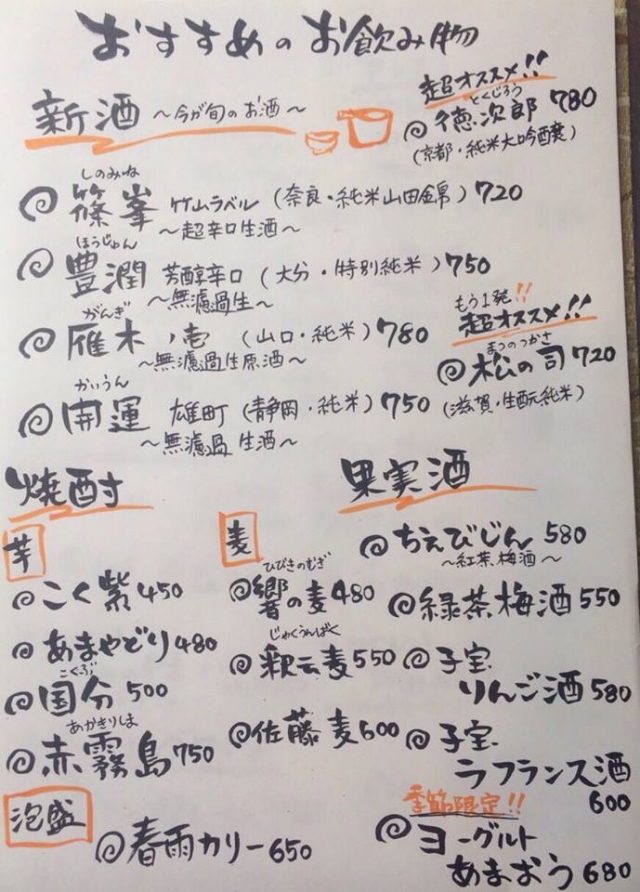 おすすめのお飲み物
新酒 ～今が旬のお酒～
超オススメ!!
とくじろう
徳次郎 780
(京都・純米大吟醸)
しのみね
篠峯 竹山ラベル (奈良・純米山田錦) 720
～超辛口生酒～
ほうじゅん
豊潤 芳醇辛口 (大分・特別純米) 750
～無濾過生～
がんぎ
雁木 ノ壱 (山口・純米) 780
～無濾過生原酒～
もう1発!!
超オススメ!!
まつのつかさ
松の司 720
(滋賀・生酛純米)
かいうん
開運 雄町 (静岡・純米) 750
～無濾過 生酒～
焼酎
芋
こく紫 450
あまやどり 480
こくぶ
国分 500
あかきりしま
赤霧島 750
麦
ひびきのむぎ
響の麦 480
じゃくうんばく
釈云麦 550
佐藤麦 600
泡盛
春雨カリー 650
果実酒
ちえびじん 580
～紅茶梅酒～
緑茶梅酒 550
子宝
りんご酒 580
子宝
ラフランス酒
600
季節限定!!
ヨーグルト
あまおう 680